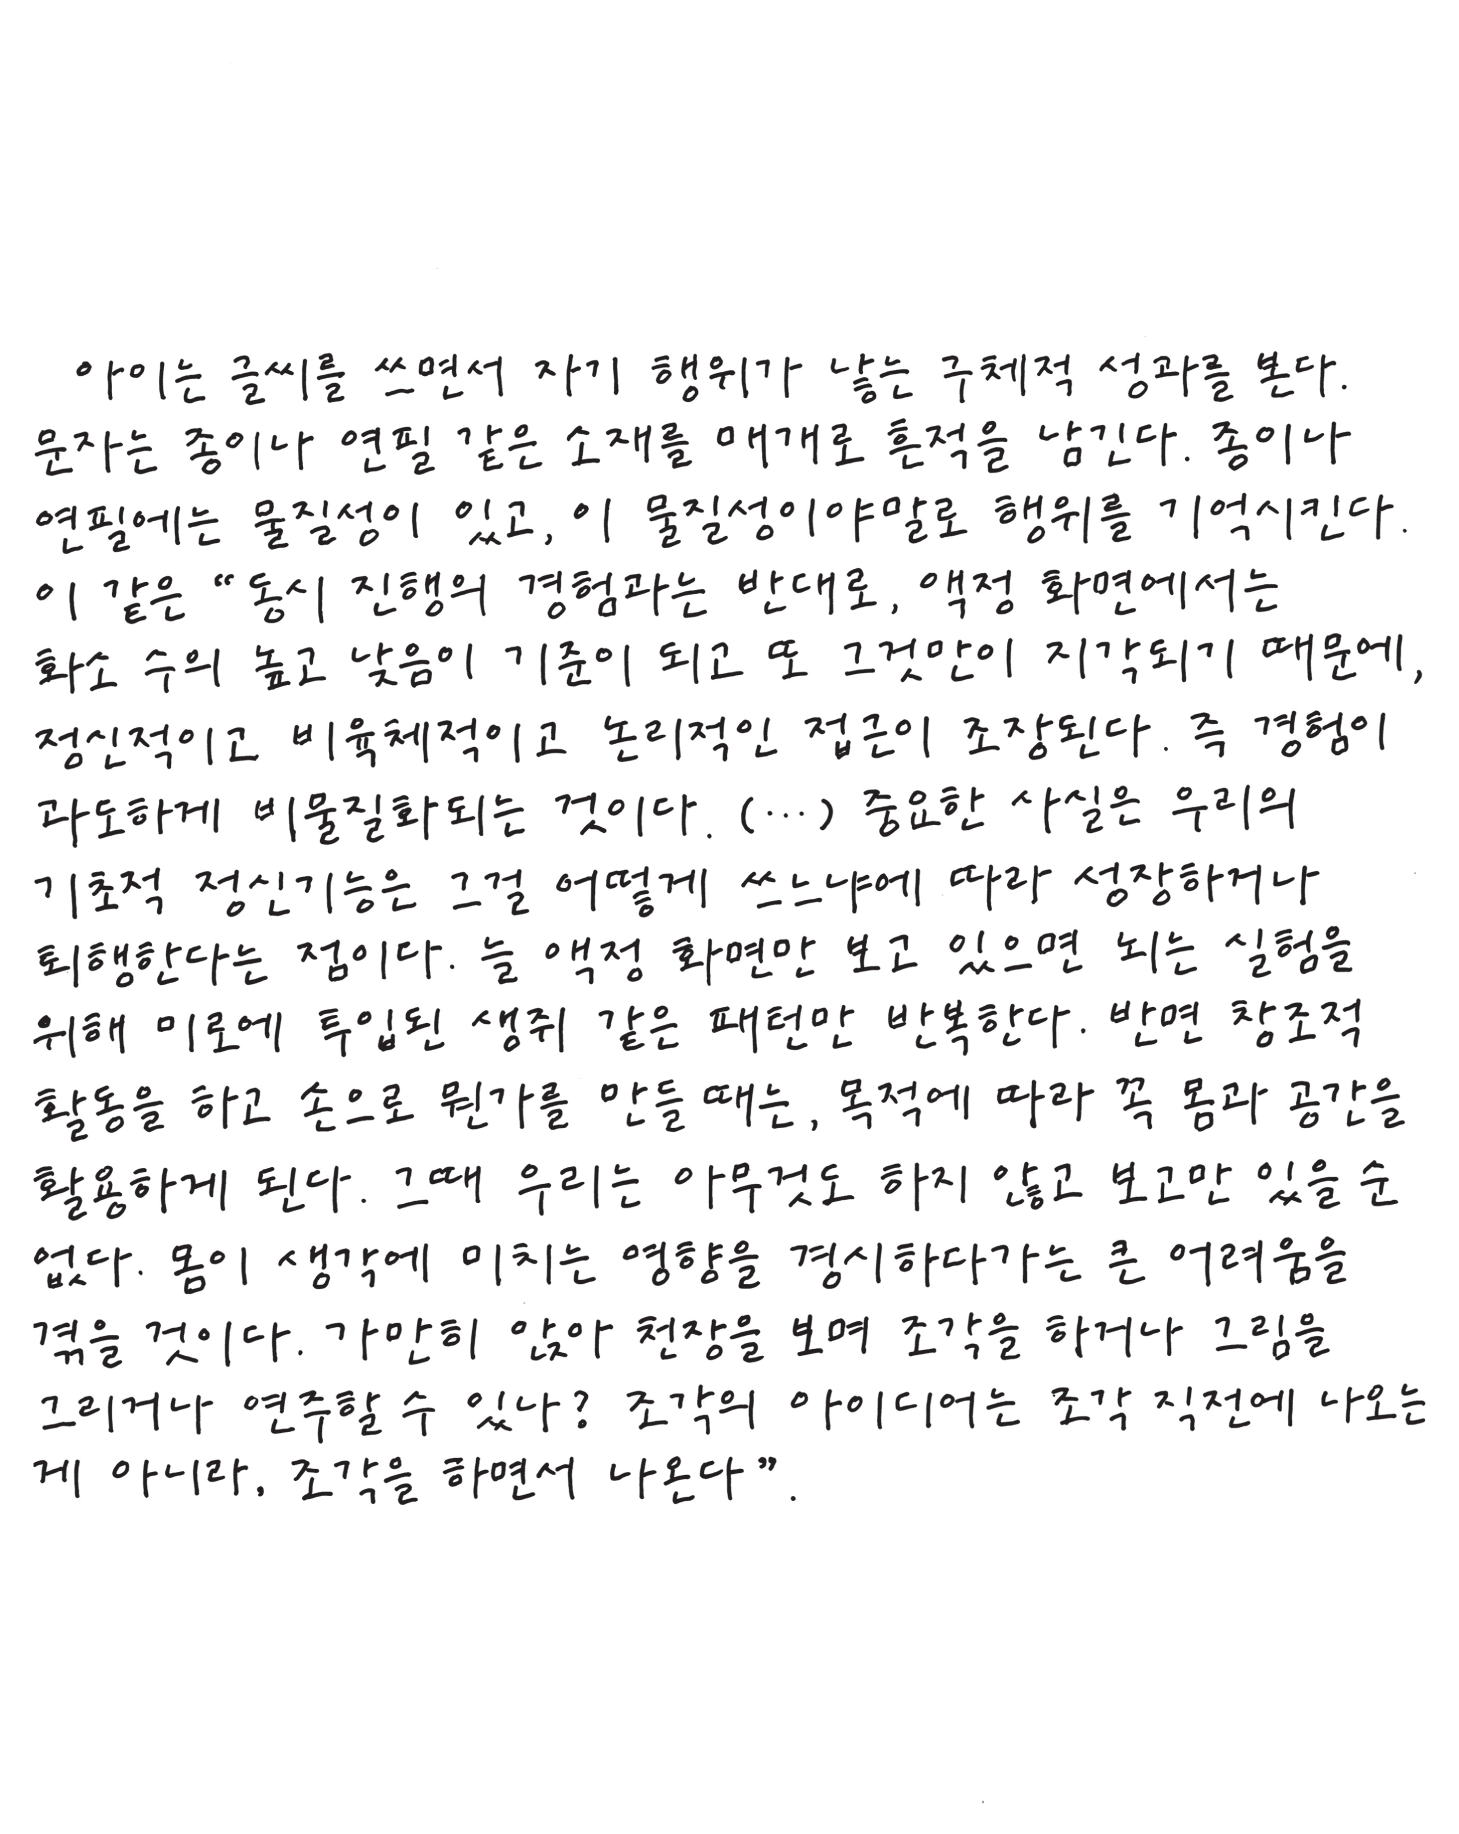 아이는 글씨를 쓰면서 자기 행위가 낳는 구체적 성과를 본다.
문자는 종이나 연필 같은 소재를 매개로 흔적을 남긴다. 종이나
연필에는 물질성이 있고, 이 물질성이야말로 행위를 기억시킨다.
이 같은 “동시 진행의 경험과는 반대로, 액정 화면에서는
화소 수의 높고 낮음이 기준이 되고 또 그것만이 지각되기 때문에,
정신적이고 비육체적이고 논리적인 접근이 조장된다. 즉 경험이
과도하게 비물질화되는 것이다. (···) 중요한 사실은 우리의
기초적 정신기능은 그걸 어떻게 쓰느냐에 따라 성장하거나
퇴행한다는 점이다. 늘 액정 화면만 보고 있으면 뇌는 실험을
위해 미로에 투입된 생쥐 같은 패턴만 반복한다. 반면 창조적
활동을 하고 손으로 뭔가를 만들 때는, 목적에 따라 꼭 몸과 공간을
활용하게 된다. 그때 우리는 아무것도 하지 않고 보고만 있을 순
없다. 몸이 생각에 미치는 영향을 경시하다가는 큰 어려움을
겪을 것이다. 가만히 앉아 천장을 보며 조각을 하거나 그림을
그리거나 연주할 수 있나? 조각의 아이디어는 조각 직전에 나오는
게 아니라, 조각을 하면서 나온다”.